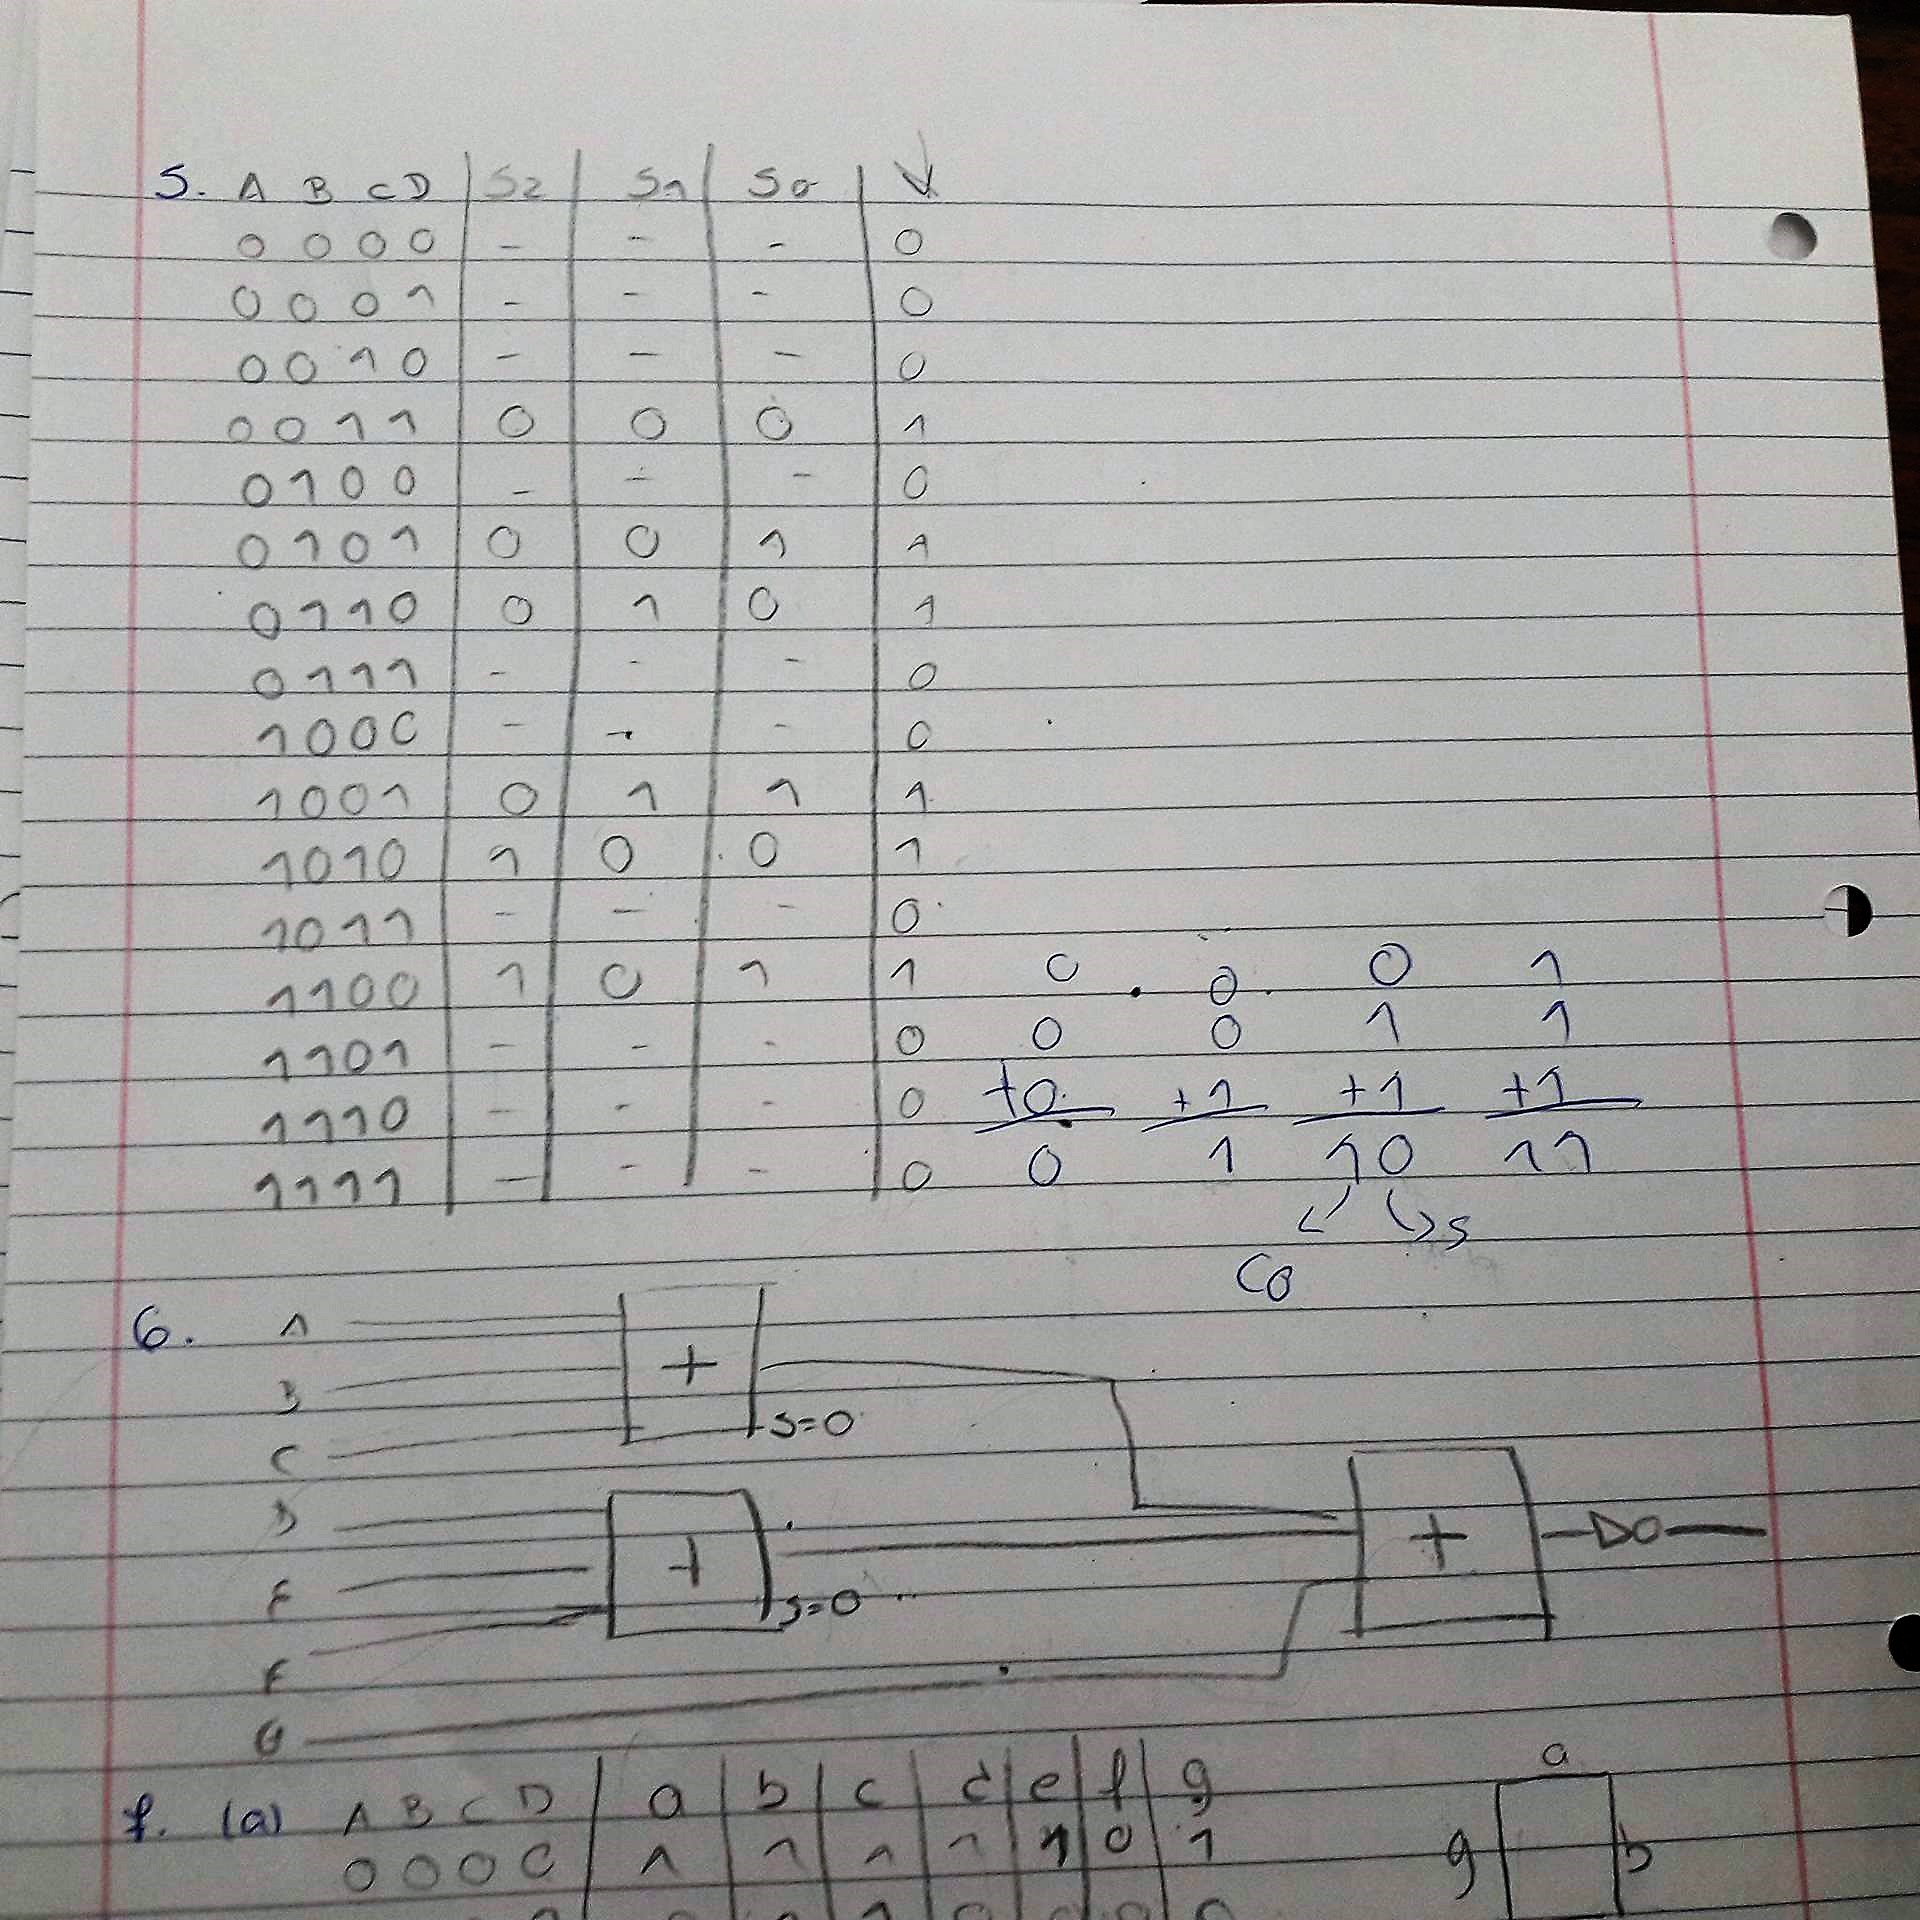 5. A B C D | S2 | S1 | S0 | V
0 0 0 0 | - | - | - | 0
0 0 0 1 | - | - | - | 0
0 0 1 0 | - | - | - | 0
0 0 1 1 | 0 | 0 | 0 | 1
0 1 0 0 | - | - | - | 0
0 1 0 1 | 0 | 0 | 1 | 1
0 1 1 0 | 0 | 1 | 0 | 1
0 1 1 1 | - | - | - | 0
1 0 0 0 | - | - | - | 0
1 0 0 1 | 0 | 1 | 1 | 1
1 0 1 0 | 1 | 0 | 0 | 1
1 0 1 1 | - | - | - | 0
1 1 0 0 | 1 | 0 | 1 | 1
1 1 0 1 | - | - | - | 0
1 1 1 0 | - | - | - | 0
1 1 1 1 | - | - | - | 0
0 0 0 1
0 0 1 1
+0 +1 +1 +1
0 1 10 11
S
C0
6. A
+
B
S=0
C
D
+
+
E
S=0
F
G
7. (a) A B C D | a | b | c | d | e | f | g
0 0 0 0 | 1 | 1 | 1 | 1 | 1 | 0 | 1
a
g b